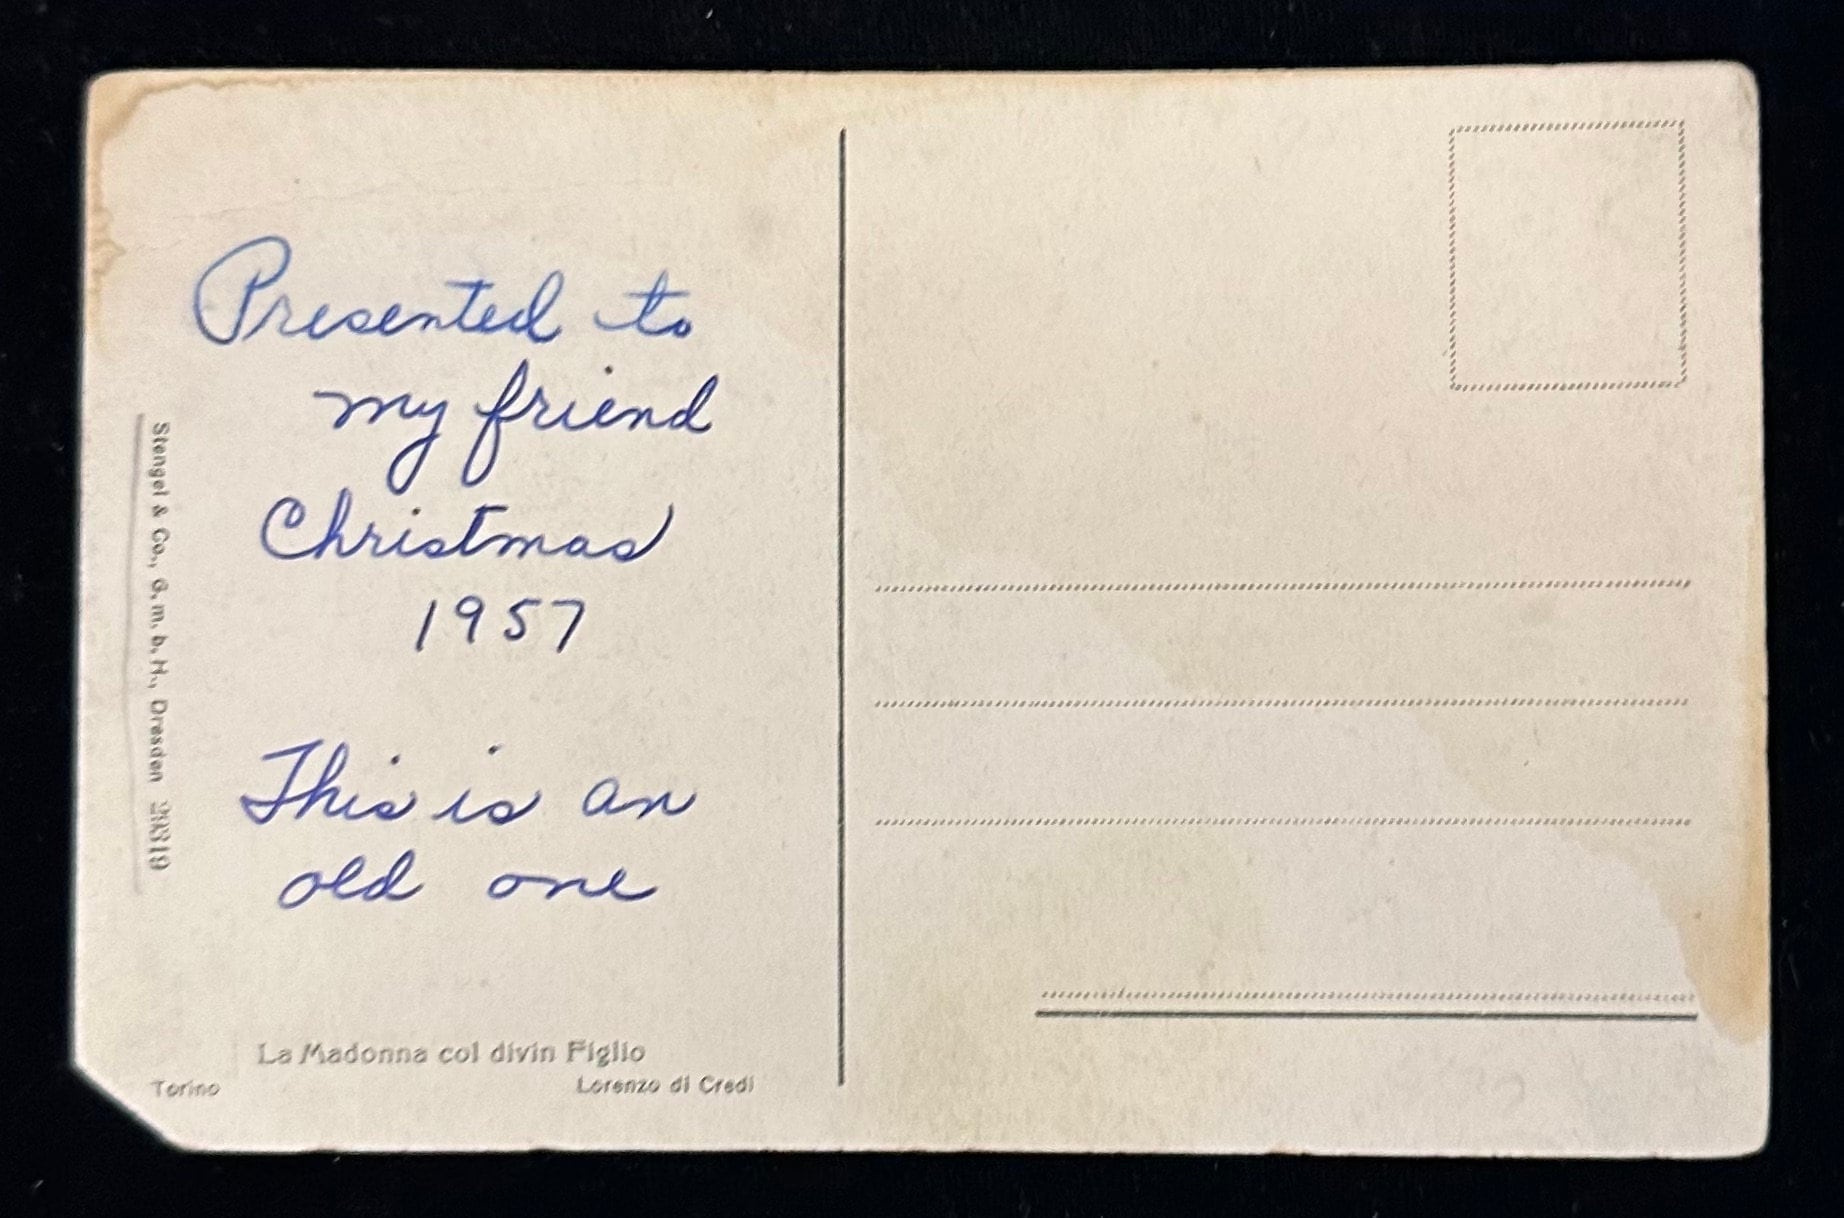 Presented to
my friend
Christmas
1957
This is an
old one
Stengel & Co., G. m. b. H., Dresden
La Madonna col divin Figlio
Torino
Lorenzo di Credi